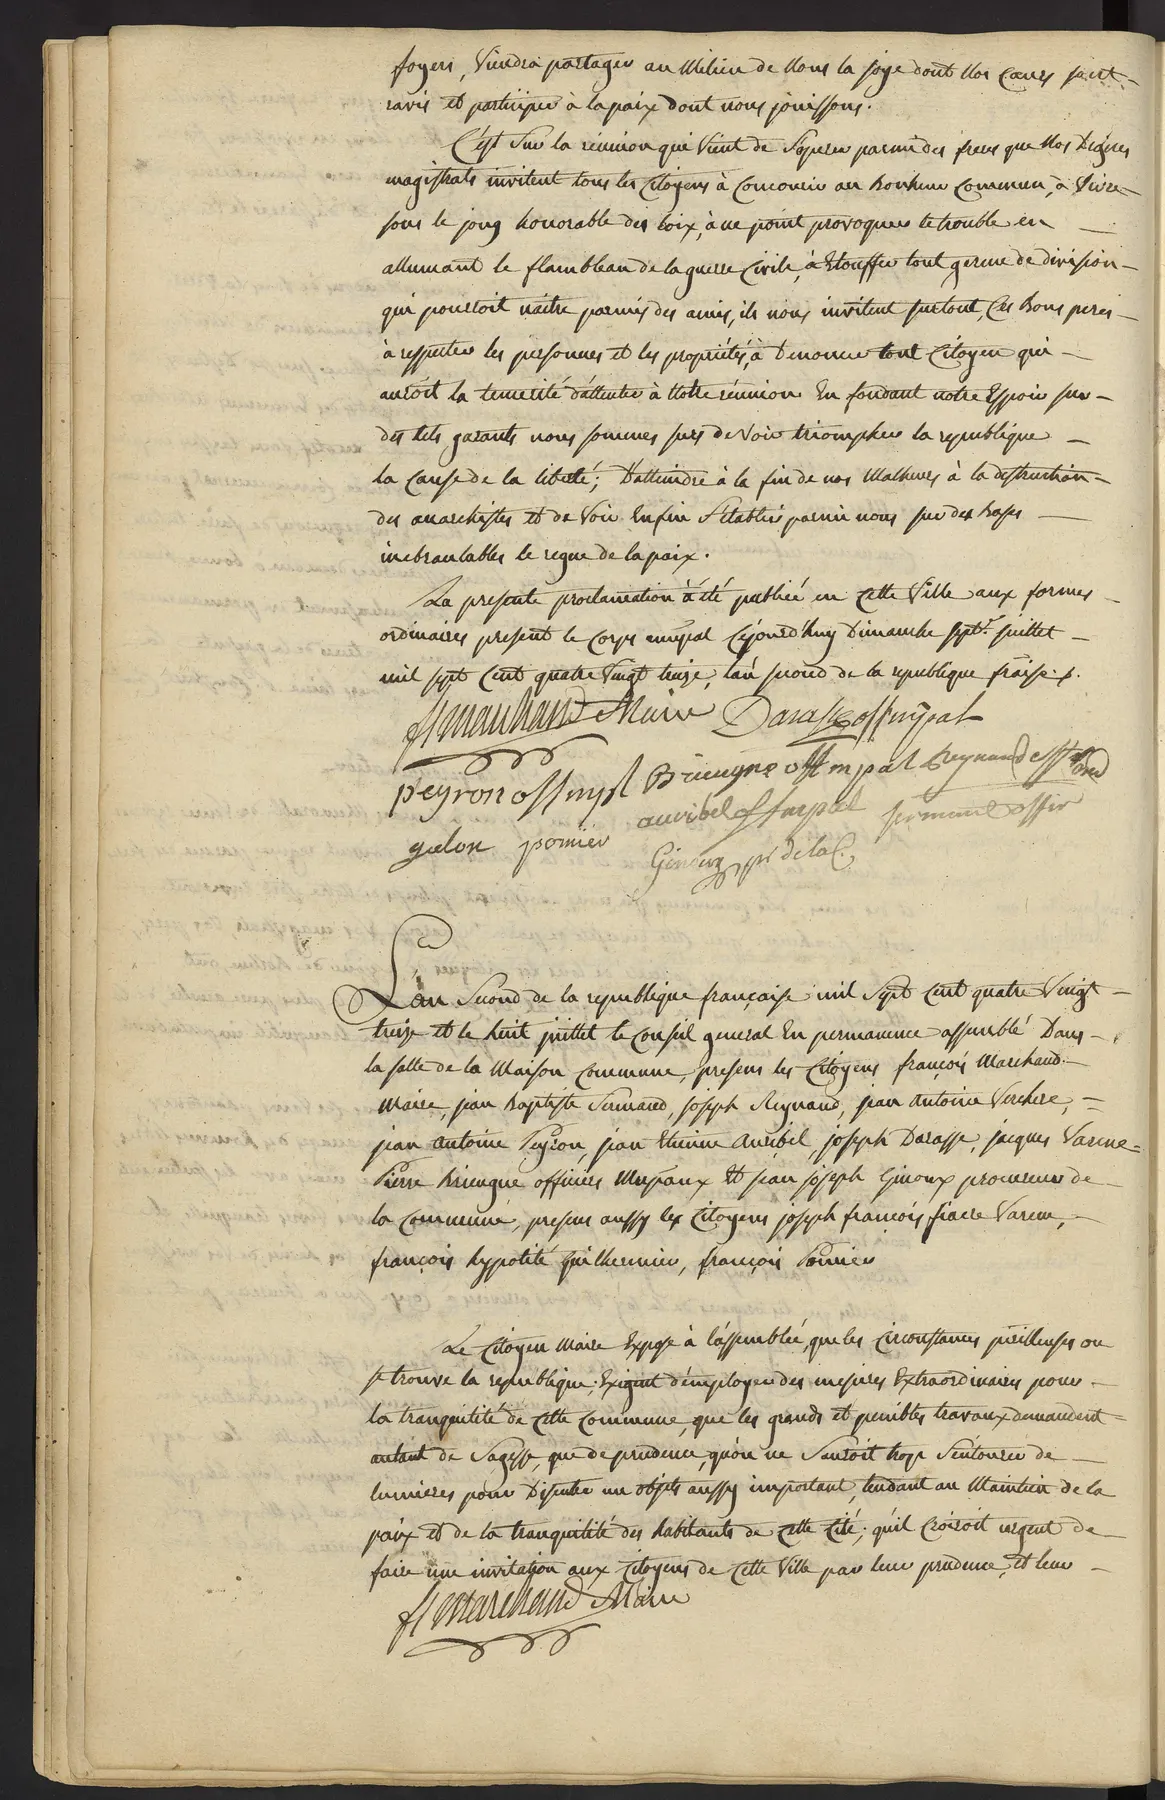 foyers, Viendra partager au Milieu de Nous la joye dont Nos Cœurs sont
ravis et participer à la paix dont nous jouissons.
C'est Sur la réunion qui Vient de S'opérer parmi des freres que Nos Dignes
magistrats invitent tous les Citoyens à Concourir au Bonheur Commun, à Vivre
sous le joug honorable des loix, à ne point provoquer le trouble en
allumant le flambeau de la guerre Civile, à Etouffer tout germe de division
qui pourroit naitre parmis des amis, ils nous invitent surtout, Ces Bons peres
à respecter les personnes et les propriétés, à Denoncer tout Citoyen qui
auroit la temerité d'attenter à Notre réunion En fondant notre Espoir sur
des tels garants nous sommes surs de Voir triompher la republique
la Cause de la liberté; D'atteindre à la fin de nos Malheurs à la destruction
des anarchistes et de Voir Enfin S'etablir parmi nous sur des Bases
inebranlables le regne de la paix.
La presente proclamation à été publiée en Cette Ville aux formes
ordinaires present le Corps mupal Cejourd'huy Dimanche sept juillet
mil sept Cent quatre Vingt treize, l'an second de la republique fraise.
fs marchand Maire Darasse off mpal
Peyron off mpl Brieugne off mpal Reynaud off
auribel off mpal sermand offir
gelon pomier
Giroux pr de la C.
L'an Second de la republique française mil Sept Cent quatre Vingt
treize et le huit juillet le Conseil general En permanence assemblé Dans
la salle de la Maison Commune, presens les Citoyens françois Marchand
Maire, jean Baptiste Sermand, joseph Reynaud, jean Antoine Verchere,
jean Antoine Peyron, jean Etienne Auribel, joseph Darasse, jacques Varene
Pierre Brieugne officiers Mupaux Et jean joseph Giroux procureur de
la Commune, presens aussy les Citoyens joseph françois fiacre Varene,
françois hypolité Guilhermier, françois Pomier
Le Citoyen Maire Expose à l'assemblée, que les Circonstances périlleuses ou
se trouve la republique, Exigent d'employer des mesures Extraordinaires pour
la tranquilité de Cette Commune, que les grands et penibles travaux demandent
autant de Sagesse, que de prudence, qu'on ne Sauroit trop S'entourer de
lumieres pour Discuter un objets aussy important, tendant au Maintien de la
paix et de la tranquilité des habitants de Cette Cité; qu'il Croiroit urgent de
faire une invitation aux Citoyens de Cette Ville par leur prudence, et leur
fs Marchand Maire